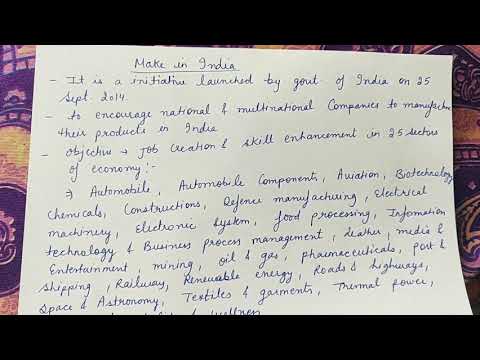 Make in India
- It is a initiative launched by govt. of India on 25
Sept. 2014.
- to encourage national & multinational Companies to manufacture
their products in India
- objective → Job creation & skill enhancement in 25 sectors
of economy:-
→ Automobile, Automobile Components, Aviation, Biotechnology
Chemicals, Constructions, Defence manufacturing, Electrical
machinery, Electronic System, food processing, Information
technology & Business process management, leather, media &
Entertainment, mining, oil & gas, pharmaceuticals, port &
Shipping, Railway, Renewable energy, Roads & highways,
Space & Astronomy, Textiles & garments, Thermal power,
& wellness